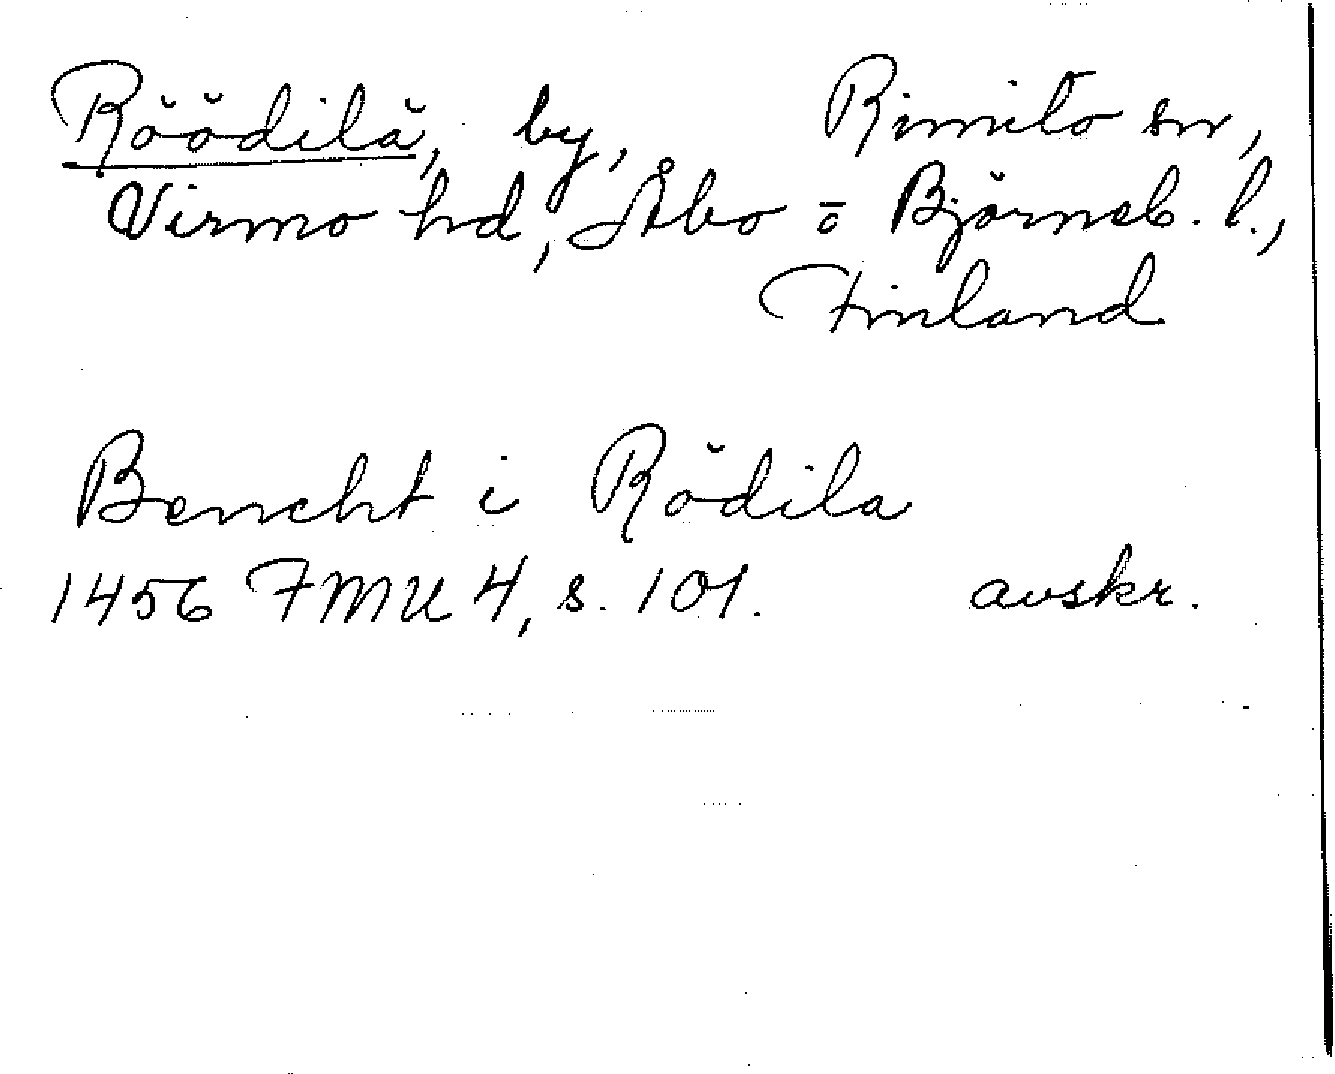 Röödilä, by, Rimito sn,
Virmo hd, Åbo o Björneb. l.,
Finland
Bencht i Rödila
1456 FMU 4, s. 101. avskr.